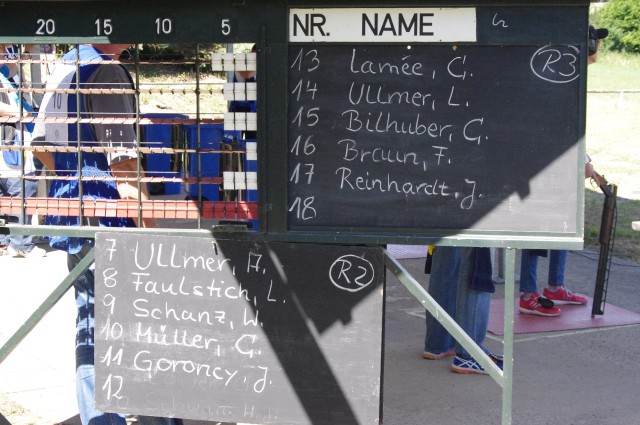 20 15 10 5
NR. NAME
13 Lamée, G. R3
14 Ullmer, L.
15 Bilhuber, G.
16 Braun, F.
17 Reinhardt, J.
18
7 Ullmer, A. R2
8 Faulstich, L.
9 Schanz, W.
10 Müller, G.
11 Goroncy, J.
12